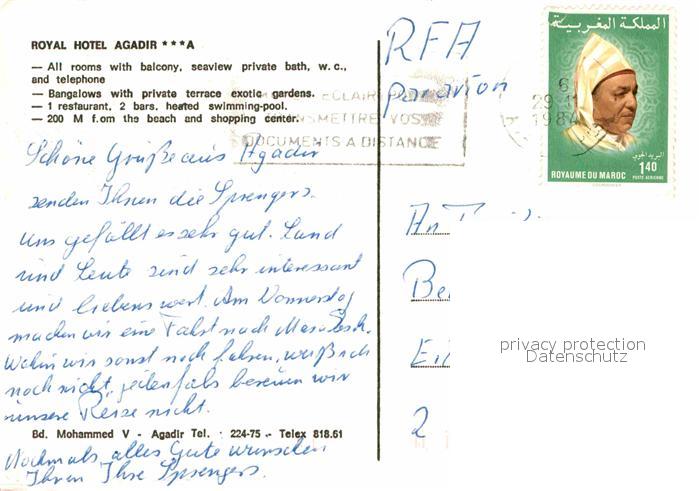 ROYAL HOTEL AGADIR ***A
— All rooms with balcony, seaview private bath, w.c.,
and telephone
— Bangalows with private terrace exotic gardens.
— 1 restaurant, 2 bars, heated swimming-pool.
— 200 M f.om the beach and shopping center.
ECLAIR
TRANSMETTRE VOS
DOCUMENTS A DISTANCE
Schöne Grüße aus Agadir
senden Ihnen die Sprengers.
Uns gefällt es sehr gut. Land
und Leute sind sehr interessant
und liebenswert. Am Donnerstag
machen wir eine Fahrt nach Marakesch.
Wohin wir sonst noch fahren, weiß ich
noch nicht, jedenfals bereuen wir
unsere Reise nicht.
Bd. Mohammed V - Agadir Tel. : 224-75 - Telex 818.61
Nochmals alles Gute wünschen
Ihnen Ihre Sprengers.
RFA
par avion
6
29
1984
المملكة المغربية
البريد الجوي
1,40
ROYAUME DU MAROC POSTE AERIENNE
An
2
privacy protection
Datenschutz